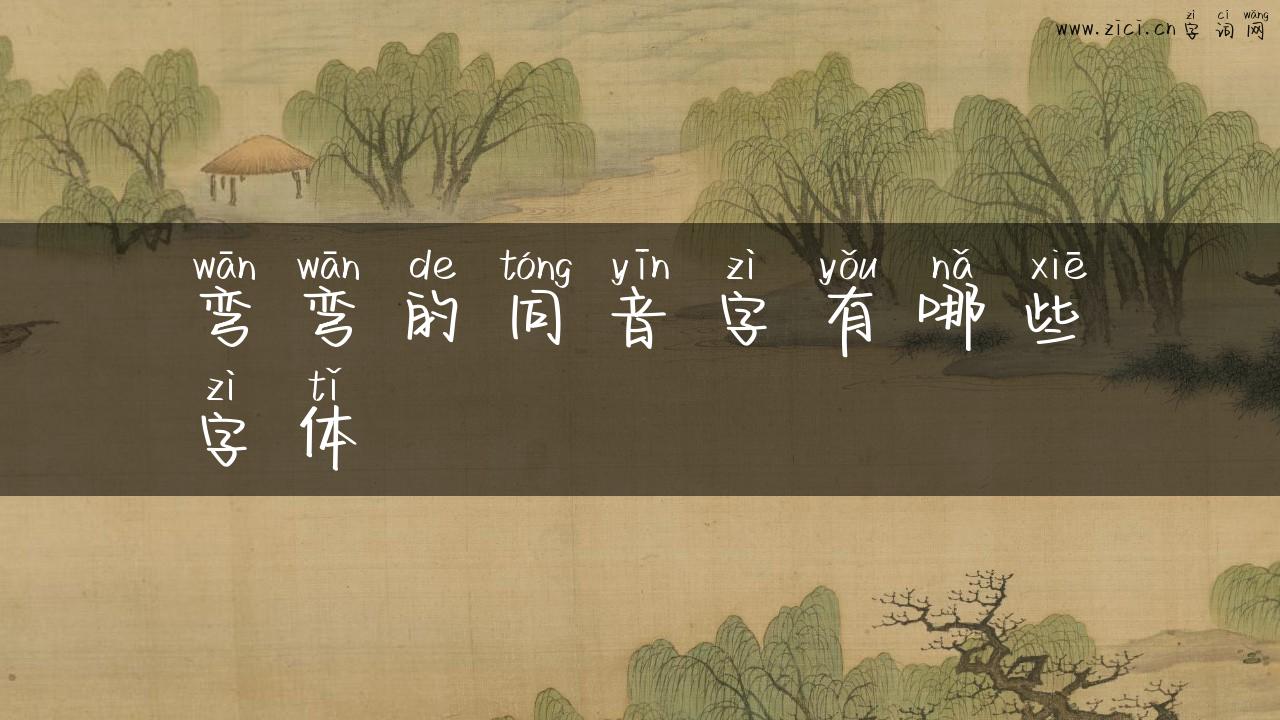 zì cí wǎng
www.zici.cn 字 词 网
wān wān de tóng yīn zì yǒu nǎ xiē
弯 弯 的 同 音 字 有 哪 些
zì tǐ
字 体